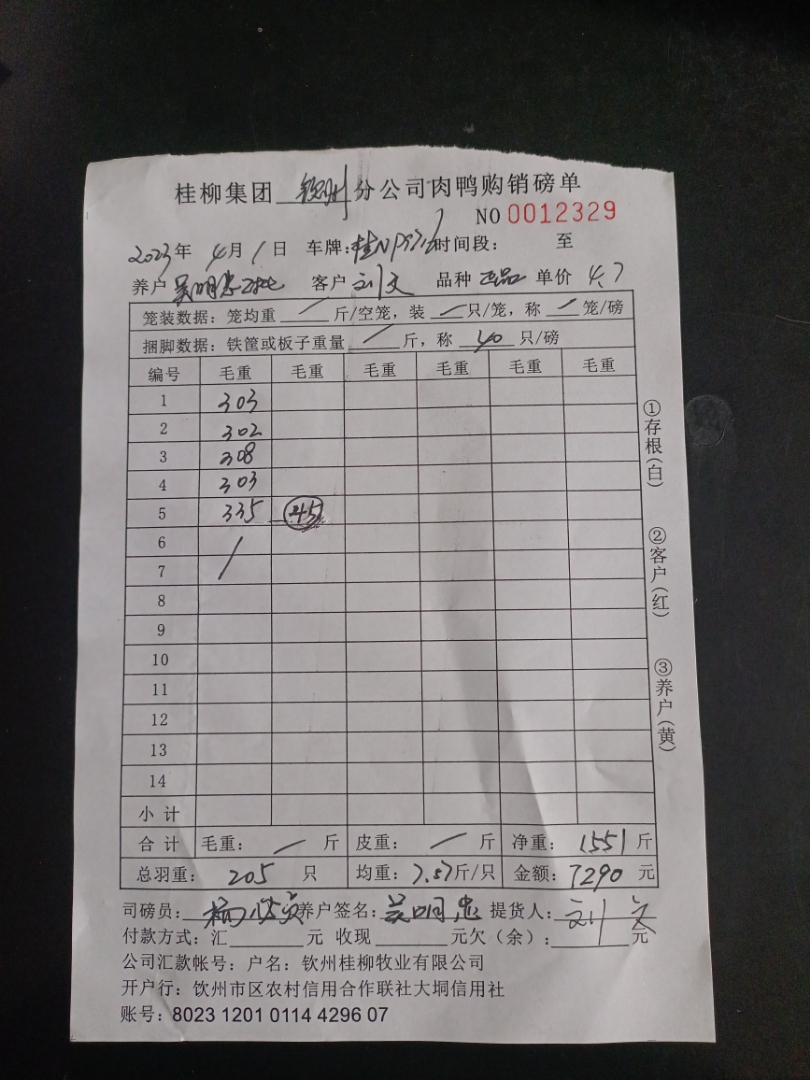 桂柳集团 钦州 分公司肉鸭购销磅单
NO 0012329
2023年 4月 1日 车牌: 时间段: 至
养户 吴明忠 客户 刘文 品种 正品 单价 4.7
笼装数据: 笼均重 / 斤/空笼, 装 / 只/笼, 称 / 笼/磅
捆脚数据: 铁筐或板子重量 / 斤, 称 40 只/磅
编号 毛重 毛重 毛重 毛重 毛重 毛重
1 303
2 302
3 308
4 303
5 335 45
6
7
8
9
10
11
12
13
14
小 计
合 计 毛重: / 斤 皮重: / 斤 净重: 1551 斤
总羽重: 205 只 均重: 7.57斤/只 金额: 7290 元
司磅员: 养户签名: 吴明忠 提货人: 刘文
付款方式: 汇 元 收现 元欠(余): 元
公司汇款帐号: 户名: 钦州桂柳牧业有限公司
开户行: 钦州市区农村信用合作联社大垌信用社
账号: 8023 1201 0114 4296 07
①存根(白)
②客户(红)
③养户(黄)